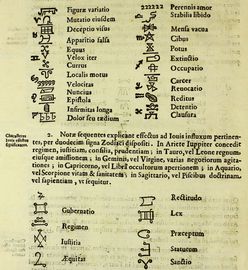 Figuræ variatio
Mutatio eiusdem
Deceptio visus
Apparitio falsa
Equus
Velox iter
Currus
Localis motus
Velocitas
Nuncius
Epistola
Infirmitas longa
Dolor seu tædium
Perennis amor
Stabilis libido
Mensa vacua
Cibus
Potus
Extinctio
Occupatio
Carcer
Renocatio
Reditus
Detentio
Clausura
2. Notæ sequentes explicant effectus ad Iouis influxum pertinen-
tes, per duodecim signa Zodiaci dispositi. In Ariete Iuppiter concedit
regimen, iustitiam, consilia, prudentiam; in Tauro, vel Leone regnum,
eiusque amissionem; in Geminis, vel Virgine, varias negotiorum agita-
tiones; in Capricorno, vel Libra occultorum apertionem; in Aquario,
vel Scorpione vitâ & sanitatem; in Sagittario, vel Piscibus doctrinam,
vel sapientiam, vt sequitur.
Gubernatio
Regimen
Iustitia
Æquitas
Rectitudo
Lex
Præceptum
Statutum
Sanctio